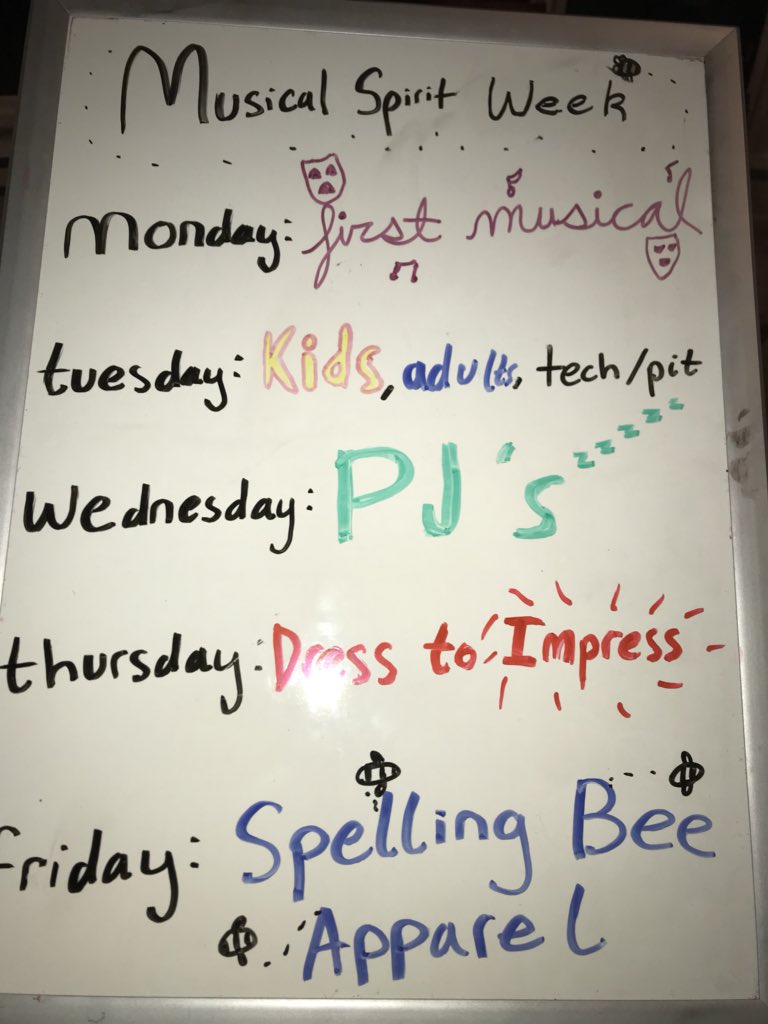 Musical Spirit Week
Monday: first musical
tuesday: Kids, adults, tech/pit
Wednesday: PJ's zzzzz
thursday: Dress to Impress
friday: Spelling Bee
Apparel